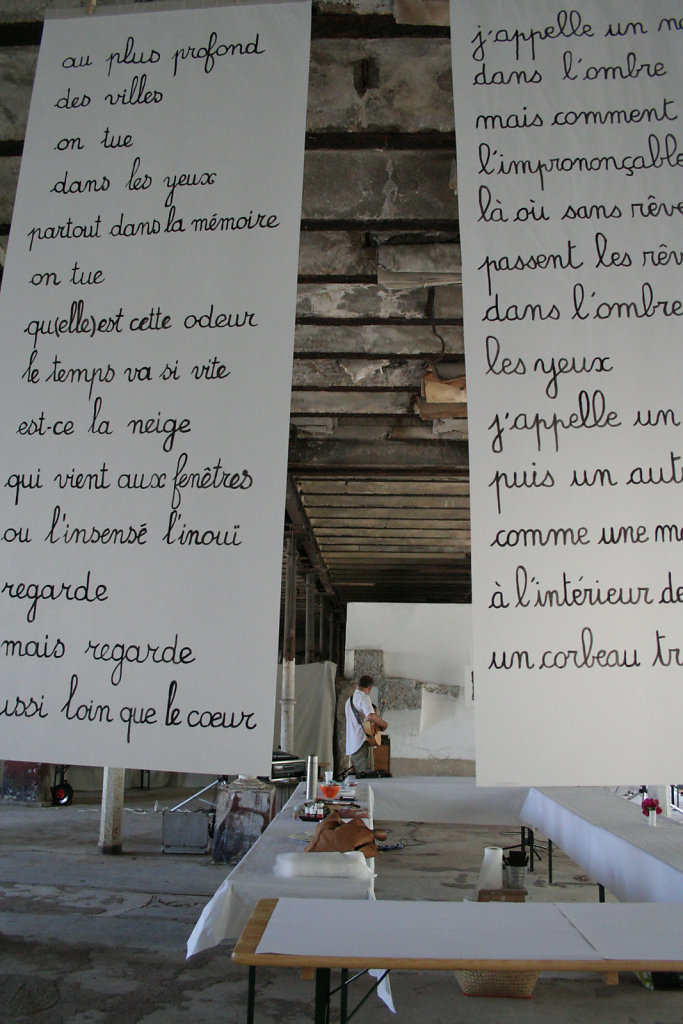 au plus profond
des villes
on tue
dans les yeux
partout dans la mémoire
on tue
qu(elle)est cette odeur
le temps va si vite
est-ce la neige
qui vient aux fenêtres
ou l'insensé l'inouï
regarde
mais regarde
loin que le coeur
j'appelle un
dans l'ombre
mais comment
l'imprononçable
là où sans
passent les
dans l'ombre
les yeux
j'appelle un
puis un
comme une
à l'intérieur
un corbeau